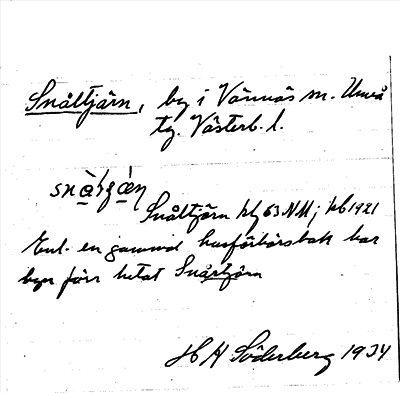 Snåltjärn, by i Vännäs sn. Umeå
tg. Västerb. l.
Snåltjärn blg 63 NM; kb 1921
Enl. en gammal husförhörsbok har
byn förr hetat Snårtjärn
H H Söderberg 1934